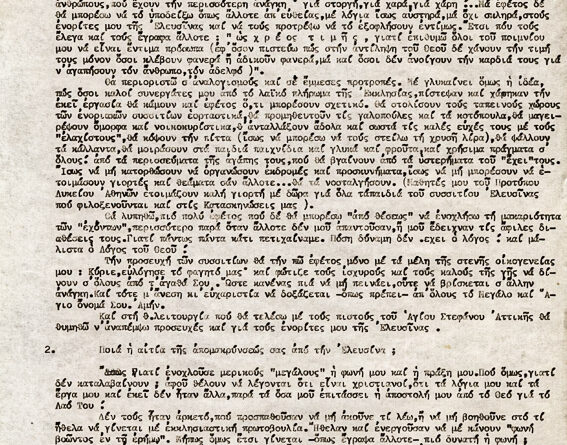 ἀνθρώπους, πού ἔχουν τήν περισσότερη ἀνάγκη γιά στοργή, γιά χαρά, γιά χάρη :.. Μά ἐφέτος δέ
θά μπορέσω νά τό ὑποδείξω ὅπως ἄλλοτε ἀπ' εὐθείας, μέ λόγια ἴσως αὐστηρά, μά ὄχι σπληρά, στούς
ἐνορίτες μου τῆς Ἐλευσῖνας καί νά τούς προτρέψω νά τό ἐξοφλήσουν ἐντίμως. Ἔτσι πού τούς
ἔλεγα καί τούς ἔγραφα ἄλλοτε : " ὡς χρέος τιμῆς, γιατί ἐπιθυμῶ ὅλοι τοῦ ποιμνίου
μου νά εἶναι ἔντιμα πρόσωπα (ἐφ' ὅσον πιστεύω πώς στήν ἀντίληψη τοῦ Θεοῦ δέ χάνουν τήν τιμή
τους μόνον ὅσοι κλέβουν φανερά ἤ ἀδικοῦν φανερά, μά καί ὅσοι δέν ἀνοίγουν τήν καρδιά τους γιά
ν' ἀγαπήσουν τόν ἄνθρωπο, τόν ἀδελφό )".
Θά περιοριστῶ σ' ἀναλογισμούς καί σέ ἔμμεσες προτροπές. Μέ γλυκαίνει ὅμως ἡ ἰδέα,
πώς ὅσοι καλοί συνεργάτες μου ἀπό τό λαϊκό πλήρωμα τῆς Ἐκκλησίας, πίστεψαν καί χάρηκαν τήν
ἐκεῖ ἐργασία θά κάμουν καί ἐφέτος ὅ,τι μπορέσουν σχετικό. Θά στολίσουν τούς ταπεινούς χώρους
τῶν ἐνοριακῶν συσσιτίων ἑορταστικά, θά προμηθευτοῦν τίς γαλοπούλες καί τά κοτόπουλα, θά μαγει-
ρέψουν ὄμορφα καί νοικοκυρίστικα, θ' ἀνταλλάξουν ἄδολα καί σωστά τίς καλές εὐχές τους μέ τούς
"ἐλαχίστους", θά κόψουν τήν πίττα (ἴσως νά μπορέσω νά τούς στείλω τή χρυσή λίρα), θά ψάλλουν
τά κάλλαντα, θά μοιράσουν στά παιδιά παιχνίδια καί γλυκά καί φροῦτα, καί χρήσιμα πράγματα σ'
ὅλους : ἀπό τά περισσεύματα τῆς ἀγάπης τους, πού θά βγαίνουν ἀπό τά ὑστερήματα τοῦ "ἔχει" τους.
Ἴσως νά μή κατορθώσουν νά ὀργανώσουν ἐκδρομές καί προσκυνήματα, ἴσως νά μή μπορέσουν νά ἑ-
τοιμάσουν γιορτές καί θεάματα σάν ἄλλοτε...Θά τά νοσταλγήσουν. (Μαθητές μου τοῦ Προτύπου
Λυκείου Ἀθηνῶν ἑτοιμάζουν καλή γιορτή μέ δῶρα γιά ὅλα τά παιδιά τοῦ συσσιτίου Ἐλευσῖνας
πού φιλοξενοῦνται καί στίς Κατασκηνώσεις μας ).
Θά λυπηθῶ, πιό πολύ ἐφέτος πού δέ θά μπορέσω "ἀπό θέσεως" νά ἐνοχλήσω τή μακαριότητα
τῶν "ἐχόντων", περισσότερο παρά ὅταν ἄλλοτε δέν μοῦ ἀπαντοῦσαν, ἤ μοῦ ἔδειχναν τίς ἄφιλες δι-
αθέσεις τους. Γιατί πάντως πάντα κάτι πετυχαίναμε. Πόση δύναμη δέν ἔχει ὁ λόγος ! καί μά-
λιστα ὁ Λόγος τοῦ Θεοῦ :
Τήν προσευχή τῶν συσσιτίων θά τήν πῶ ἐφέτος μόνο μέ τά μέλη τῆς στενῆς οἰκογενείας
μου : Κύριε, εὐλόγησε τό φαγητό μας καί φώτιζε τούς ἰσχυρούς καί τούς καλούς τῆς γῆς νά δί-
νουν σ' ὅλους ἀπό τ' ἀγαθά Σου. Ὥστε κανένας πιά νά μή πεινάει, οὔτε νά βρίσκεται σ' ἄλλην
ἀνάγκη. Καί τότε μ' ἄνεση κι εὐχαριστία νά δοξάζεται -ὅπως πρέπει- ἀπ' ὅλους τό Μεγάλο καί Ἅ-
γιο ὄνομά Σου. Ἀμήν.
Καί στή θ. λειτουργία πού θά τελέσω μέ τούς πιστούς τοῦ Ἁγίου Στεφάνου Ἀττικῆς θά
θυμηθῶ ν' ἀναπέμψω προσευχές καί γιά τούς ἐνορίτες μου τῆς Ἐλευσῖνας .
2. Ποιά ἡ αἰτία τῆς ἀπομακρύνσεώς σας ἀπό τήν Ἐλευσῖνα ;
Γιατί ἐνοχλοῦσε μερικούς "μεγάλους" ἡ φωνή μου καί ἡ πράξη μου. Πού ὅμως, γιατί
δέν καταλαβαίνουν ; ἀφοῦ θέλουν νά λέγονται ὅτι εἶναι χριστιανοί, ὅτι τά λόγια μου καί τά
ἔργα μου καί ἐκεῖ δέν ἦταν ἄλλα, παρά τά ὅσα μοῦ ἐπιτάσσει ἡ ἀποστολή μου ἀπό τό Θεό γιά τό
Λαό Του :
Δέν τούς ἦταν ἀρκετό, πού προσπαθοῦσαν νά μή ἀκοῦνε τί λέω, ἤ νά μή βοηθοῦνε στό τί
ἤθελα νά γίνεται μέ ἐκκλησιαστική πρωτοβουλία. Ἤθελαν καί ἐνεργοῦσαν νά μέ κάνουν "φωνή
βοῶντος ἐν τῇ ἐρήμῳ". Κήπως ὅμως ἔτσι γίνεται -ὅπως ἔγραψα ἄλλοτε-, πιό δυνατή ἡ φωνή ;